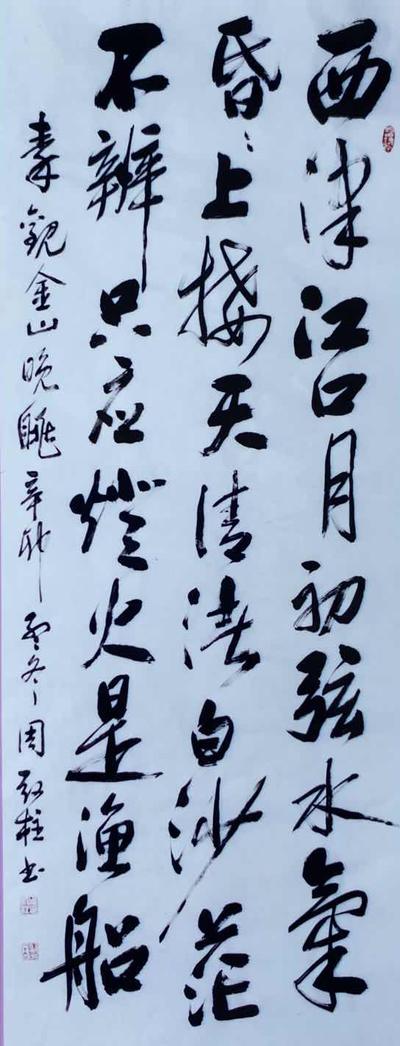 西津江口月初弦水氣
昏〻上接天清渚白沙茫
不辨只应燈火是渔船
秦觀金山晚眺辛卯冬周书